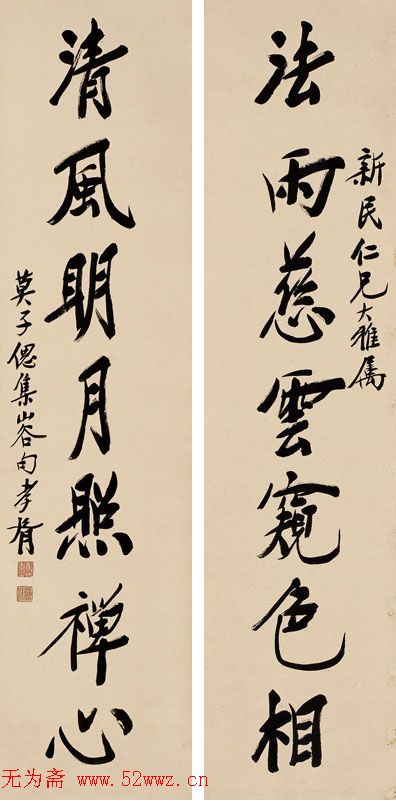 新民仁兄大雅属
法雨慈雲窺色相
清風明月照禪心
莫子偲集山谷句孝胥
无为斋 www.52wwz.cn